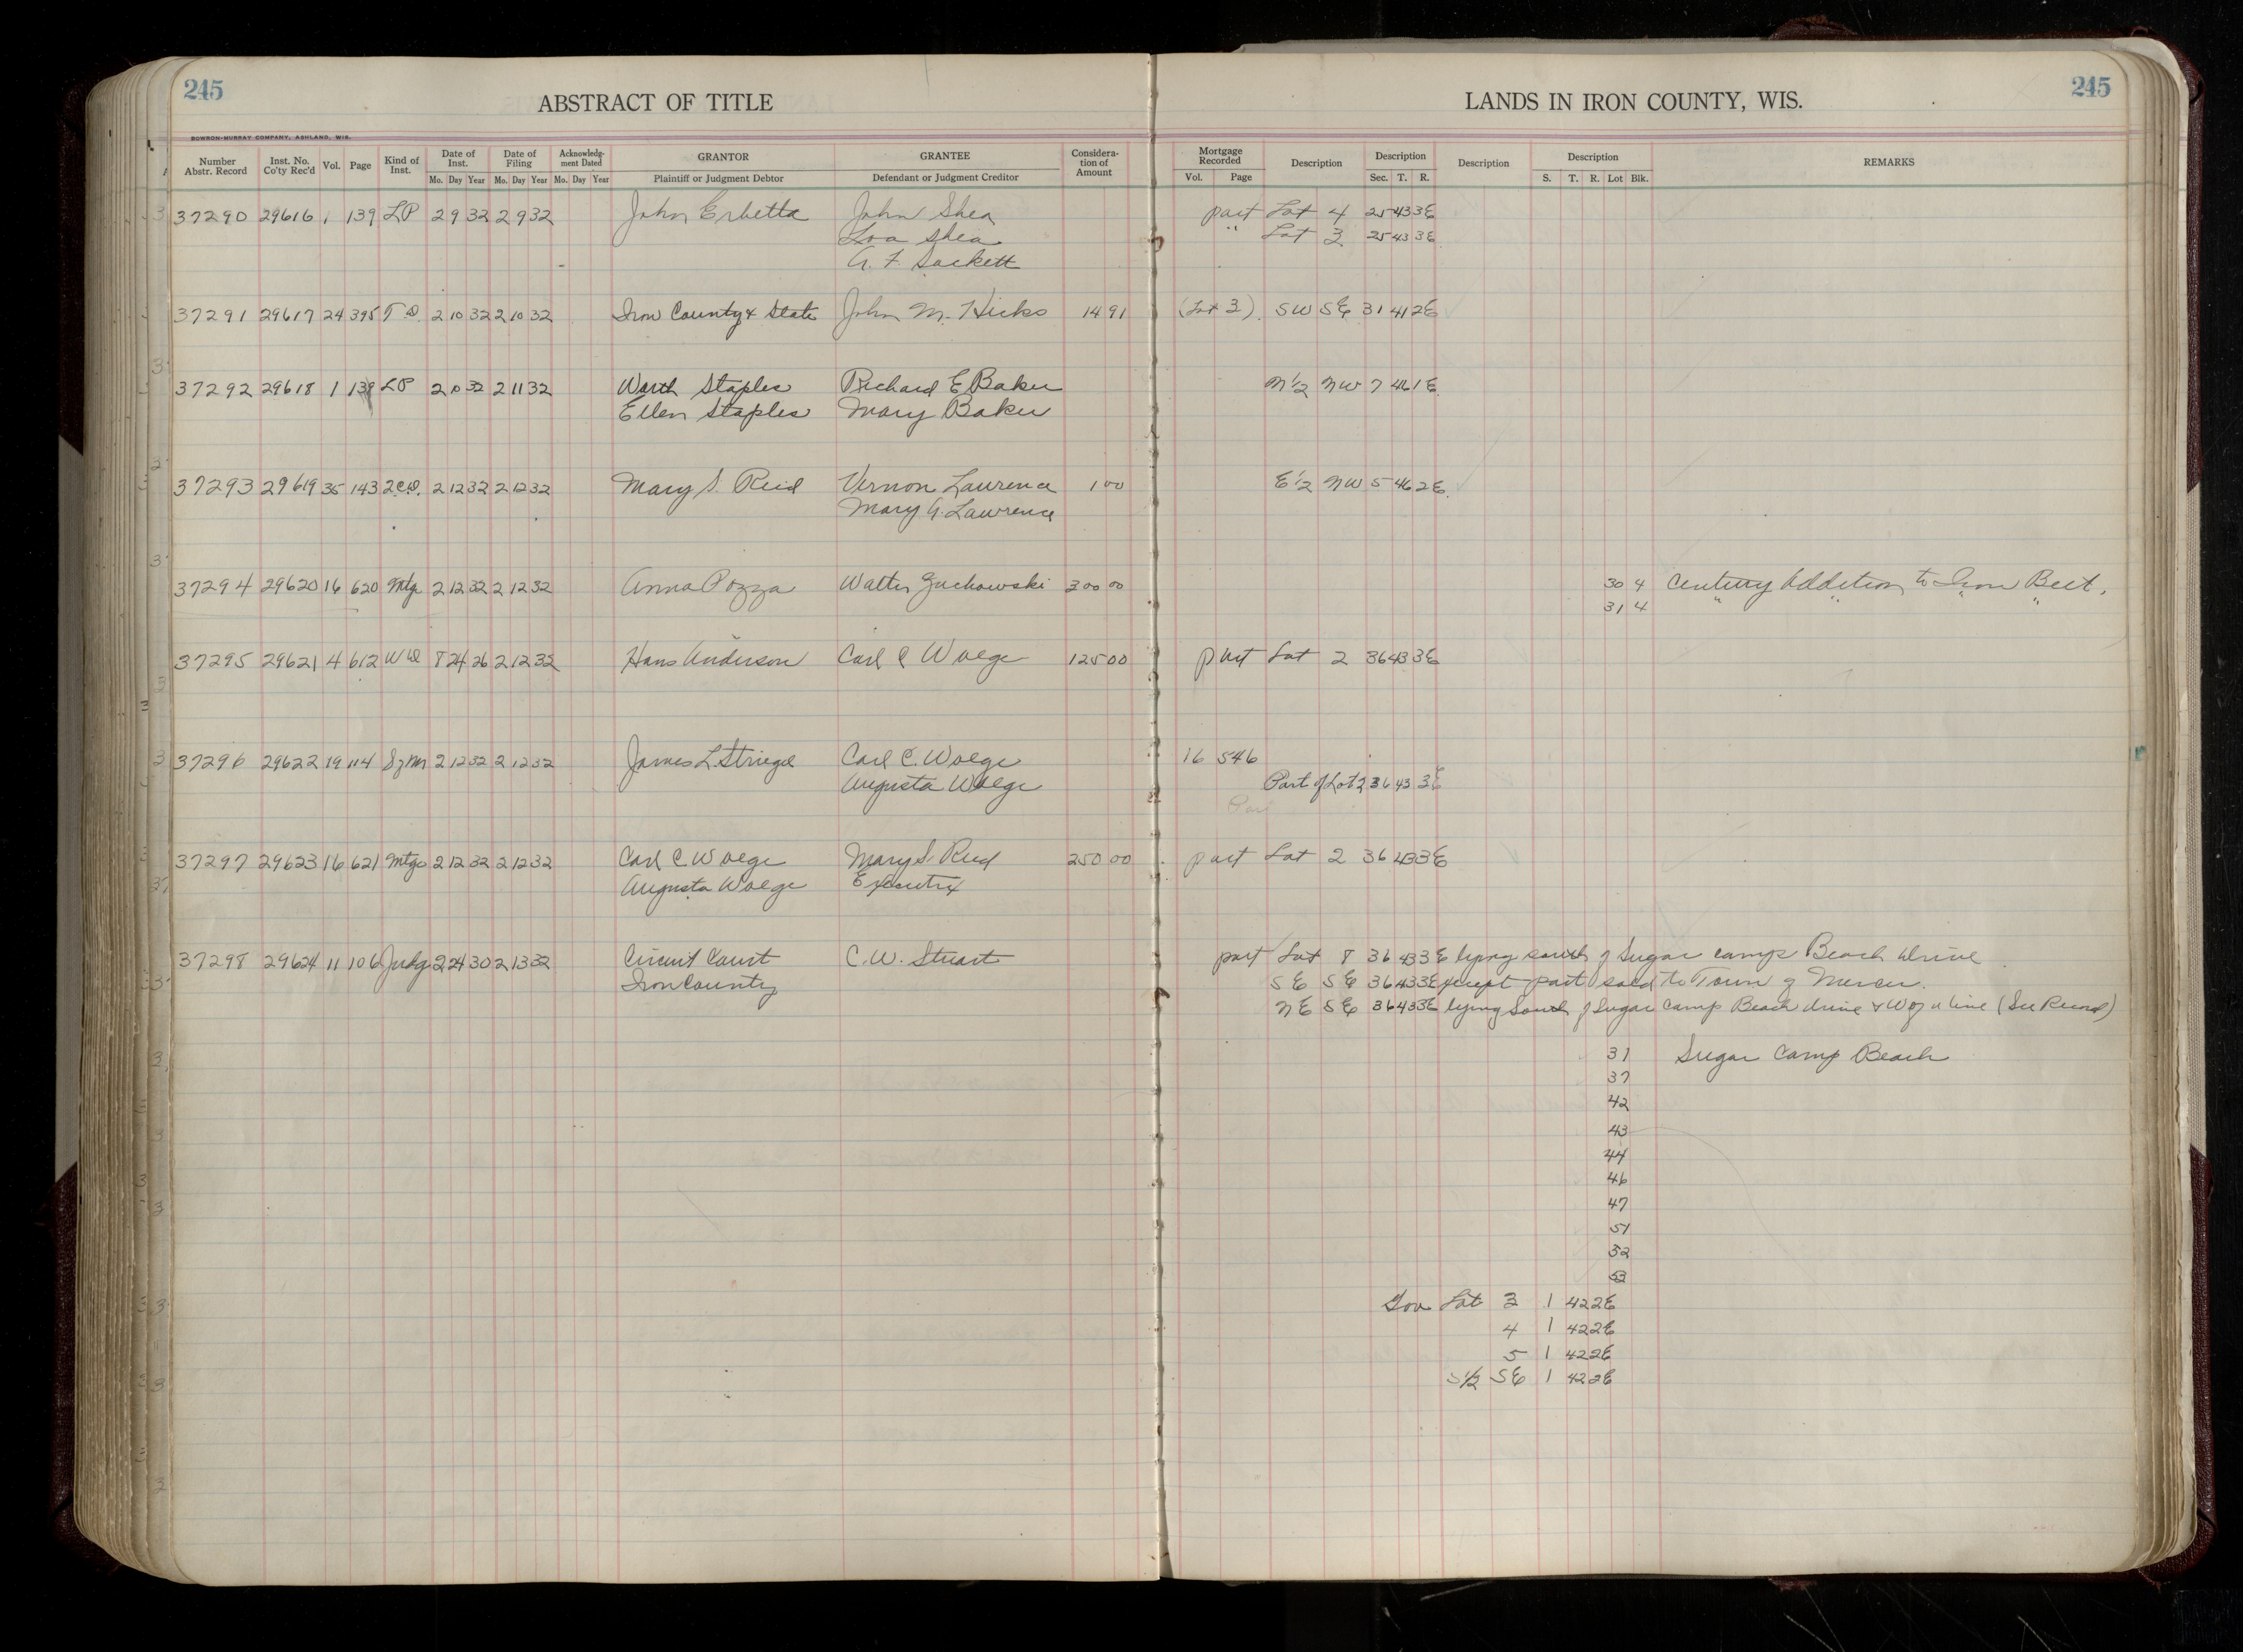 245
ABSTRACT OF TITLE
LANDS IN IRON COUNTY, WIS.
245
BOWRON-MURRAY COMPANY, ASHLAND, WIS.
Number Abstr. Record | Inst. No. Co'ty Rec'd | Vol. | Page | Kind of Inst. | Date of Inst. Mo. Day Year | Date of Filing Mo. Day Year | Acknowledg-ment Dated Mo. Day Year | GRANTOR Plaintiff or Judgment Debtor | GRANTEE Defendant or Judgment Creditor | Considera-tion of Amount | Mortgage Recorded Vol. Page | Description | Description Sec. T. R. | Description | Description S. T. R. Lot Blk. | REMARKS
37290 29616 1 139 LP 2 9 32 2 9 32 John Erbetta John Shea part Lot 4 25 43 3E
Loa Shea " Lot 3 25 43 3E
A. F. Sackett
37291 29617 24 395 T D 2 10 32 2 10 32 Iron County & State John M. Hicks 14 91 (Lot 3) SW SE 31 41 2E
37292 29618 1 139 LP 2 10 32 2 11 32 Worth Staples Richard E Baker N½ NW 7 46 1E
Ellen Staples Mary Baker
37293 29619 35 143 2CD. 2 12 32 2 12 32 Mary S. Reid Vernon Laurence 1 00 E½ NW 5 46 2E
Mary A. Lawrence
37294 29620 16 620 Mtg 2 12 32 2 12 32 Anna Pozza Walter Zuchowski 300 00 30 4 Century Addition to Iron Belt.
31 4 " " " "
37295 29621 4 612 WD 8 24 26 2 12 32 Hans Anderson Carl C Woege 125 00 part Lot 2 36 43 3E
37296 29622 19 114 SzM 2 12 32 2 12 32 James L. Striegel Carl C. Woege 16 546
Augusta Woege Part of Lot 2 36 43 3E
Part
37297 29623 16 621 Mtge 2 12 32 2 12 32 Carl C Woege Mary S. Reid 250 00 part Lot 2 36 43 3E
Augusta Woege Executrix
37298 29624 11 106 Judg 2 24 30 2 13 32 Circuit Court C. W. Stuart part Lot 8 36 43 3E lying south of Sugar camp Beach drive
Iron County SE SE 36 43 3E except part sold to Town of Mercer.
NE SE 36 43 3E lying South of Sugar Camp Beach drive & W of a line (See Record)
31 Sugar Camp Beach
37
42
43
44
46
47
51
52
53
Gov Lot 3 1 42 2E
4 1 42 2E
5 1 42 2E
S½ SE 1 42 2E